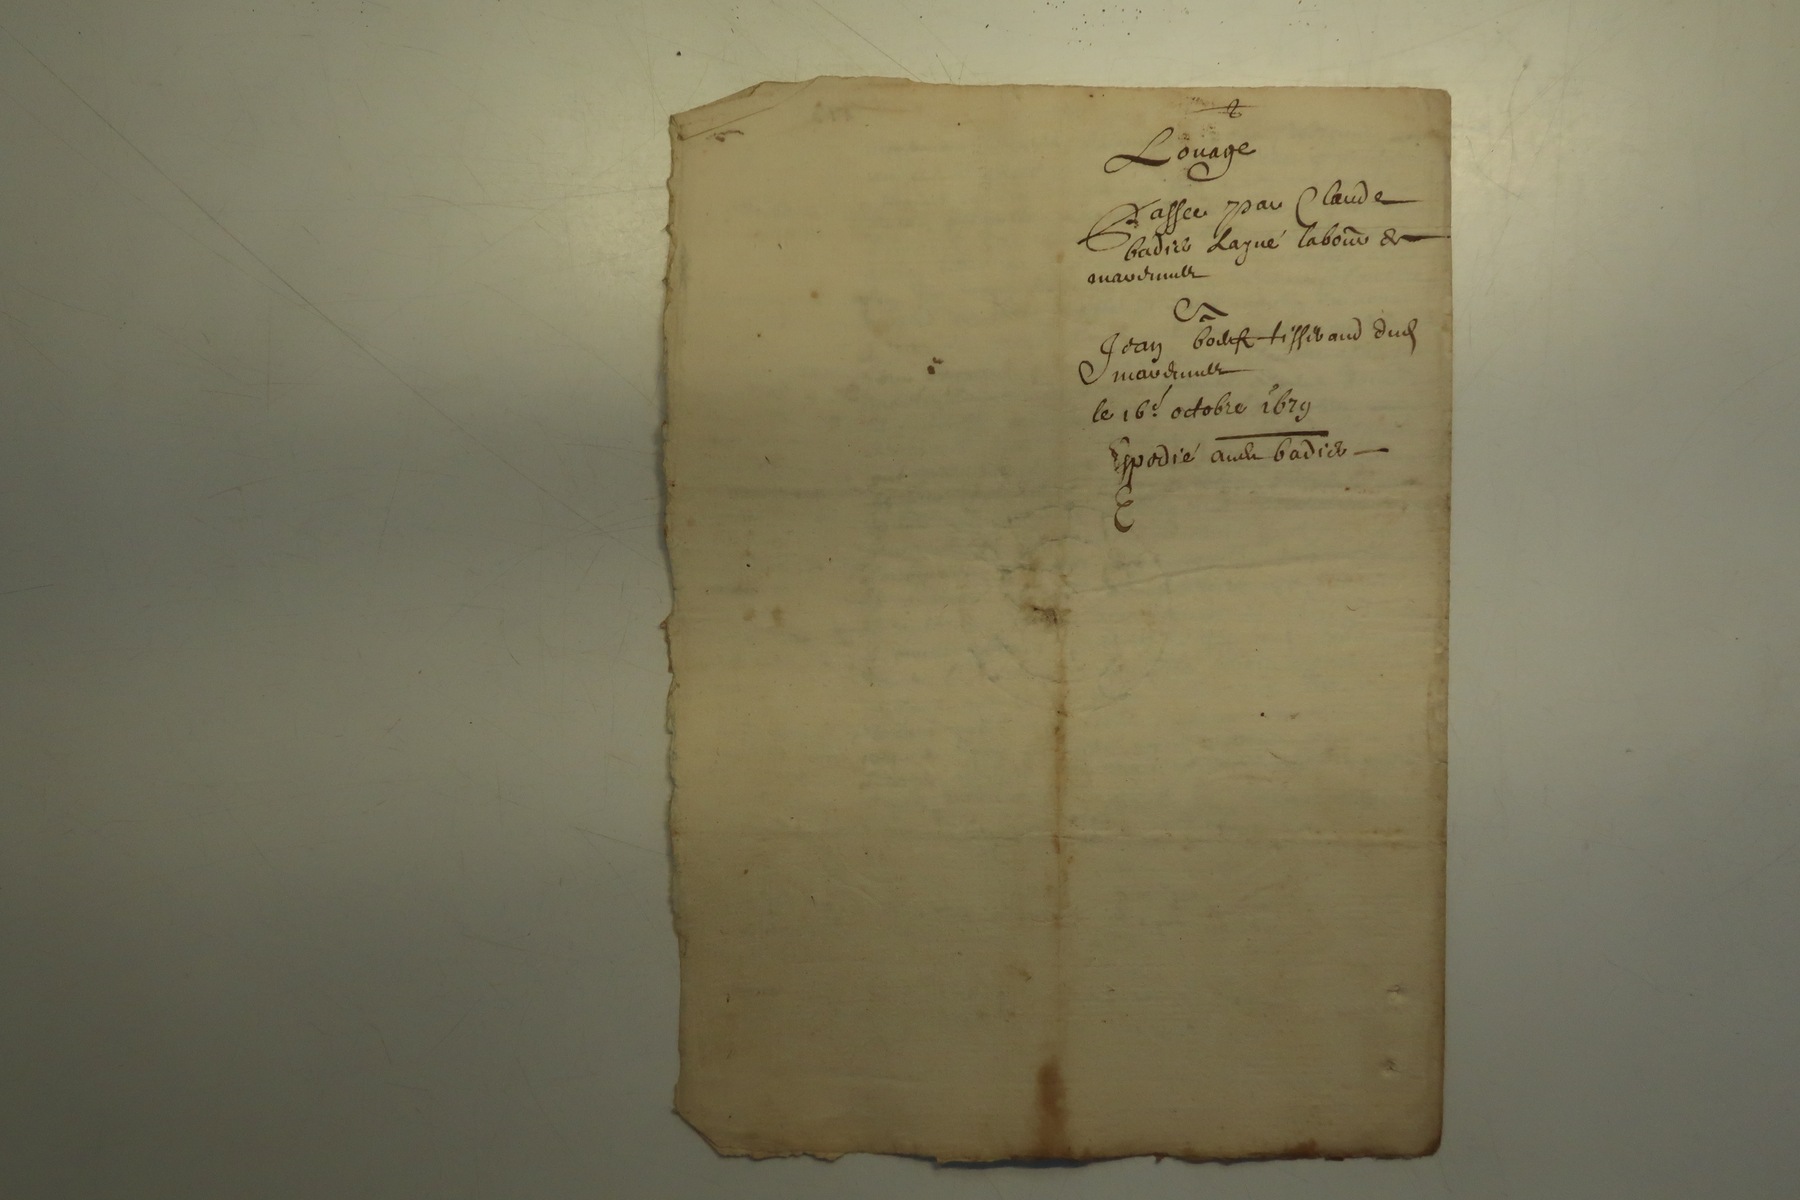 Louage
Passee par Claude
badier Layné labour de
mardeuille
A
Jean tisserand dud
mardeuille
le 16e octobre 1679
Expedié aud badier
E